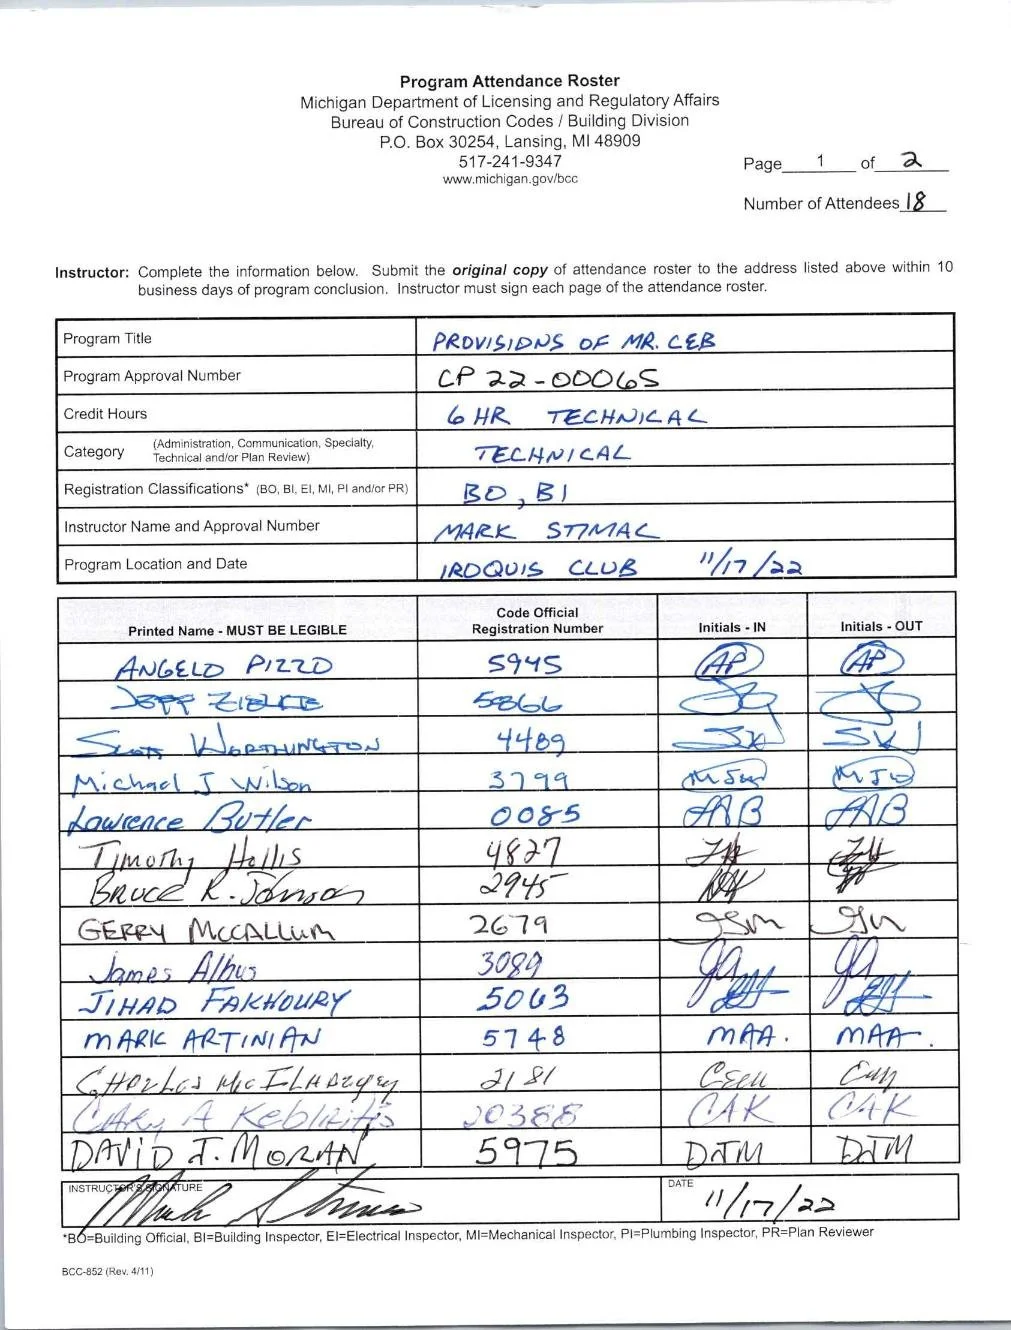 Program Attendance Roster
Michigan Department of Licensing and Regulatory Affairs
Bureau of Construction Codes / Building Division
P.O. Box 30254, Lansing, MI 48909
517-241-9347
www.michigan.gov/bcc
Page 1 of 2
Number of Attendees 18
Instructor: Complete the information below. Submit the original copy of attendance roster to the address listed above within 10
business days of program conclusion. Instructor must sign each page of the attendance roster.
Program Title PROVISIONS OF MR. CEB
Program Approval Number CP 22-00065
Credit Hours 6 HR TECHNICAL
Category (Administration, Communication, Specialty, Technical and/or Plan Review) TECHNICAL
Registration Classifications* (BO, BI, EI, MI, PI and/or PR) BO, BI
Instructor Name and Approval Number MARK STIMAC
Program Location and Date IROQUIS CLUB 11/17/22
Printed Name - MUST BE LEGIBLE Code Official Registration Number Initials - IN Initials - OUT
ANGELO PIZZO 5945 AP AP
JEFF ZIELKE 5866
SCOTT WORTHINGTON 4489
Michael J Wilson 3799 MJW MJW
Lawrence Butler 0085 LAB LAB
Timothy Hollis 4827 TH TH
BRUCE R. Johnson 2945
GERRY McCALLUM 2679
James Albus 3089 JA JA
JIHAD FAKHOURY 5063
MARK ARTINIAN 5748 MAA. MAA.
2181
CARY A 20388 CAK CAK
DAVID J. MORAN 5975 DJM DJM
INSTRUCTOR'S SIGNATURE Mark Stimac DATE 11/17/22
*BO=Building Official, BI=Building Inspector, EI=Electrical Inspector, MI=Mechanical Inspector, PI=Plumbing Inspector, PR=Plan Reviewer
BCC-852 (Rev. 4/11)